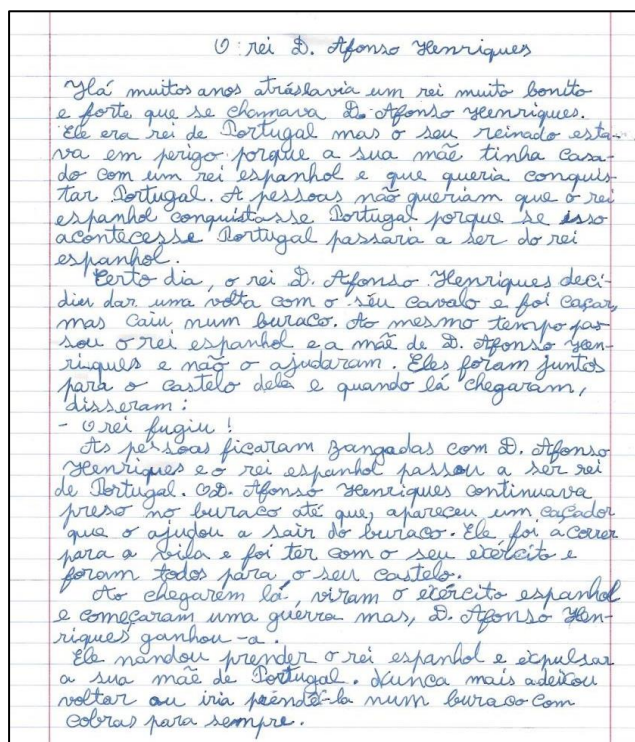 O rei D. Afonso Henriques
Há muitos anos atráshavia um rei muito bonito
e forte que se chamava D. Afonso Henriques.
Ele era rei de Portugal mas o seu reinado esta-
va em perigo porque a sua mãe tinha casa-
do com um rei espanhol e que queria conquis-
tar Portugal. A pessoas não queriam que o rei
espanhol conquistasse Portugal porque se isso
acontecesse Portugal passaria a ser do rei
espanhol.
Certo dia, o rei D. Afonso Henriques deci-
diu dar uma volta com o seu cavalo e foi caçar,
mas caiu num buraco. Ao mesmo tempo pas
sou o rei espanhol e a mãe de D. Afonso Hen-
riques e não o ajudaram. Eles foram juntos
para o castelo dela e quando lá chegaram,
disseram:
- O rei fugiu!
As pessoas ficaram zangadas com D. Afonso
Henriques e o rei espanhol passou a ser rei
de Portugal. O D. Afonso Henriques continuava
preso no buraco até que, apareceu um caçador
que o ajudou a sair do buraco. Ele foi a correr
para a vila e foi ter com o seu exército e
foram todos para o seu castelo.
Ao chegarem lá, viram o exército espanhol
e começaram uma guerra mas, D. Afonso Hen-
riques ganhou-a.
Ele mandou prender o rei espanhol e expulsar
a sua mãe de Portugal. Nunca mais a deixou
voltar ou iria prendê-la num buraco com
cobras para sempre.